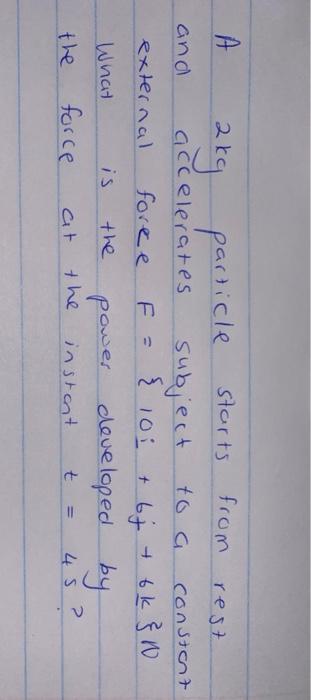 A 2kg particle starts from rest
and accelerates subject to a constant
external force F = { 10i + 6j + 6k } N
What is the power developed by
the force at the instant t = 4s?